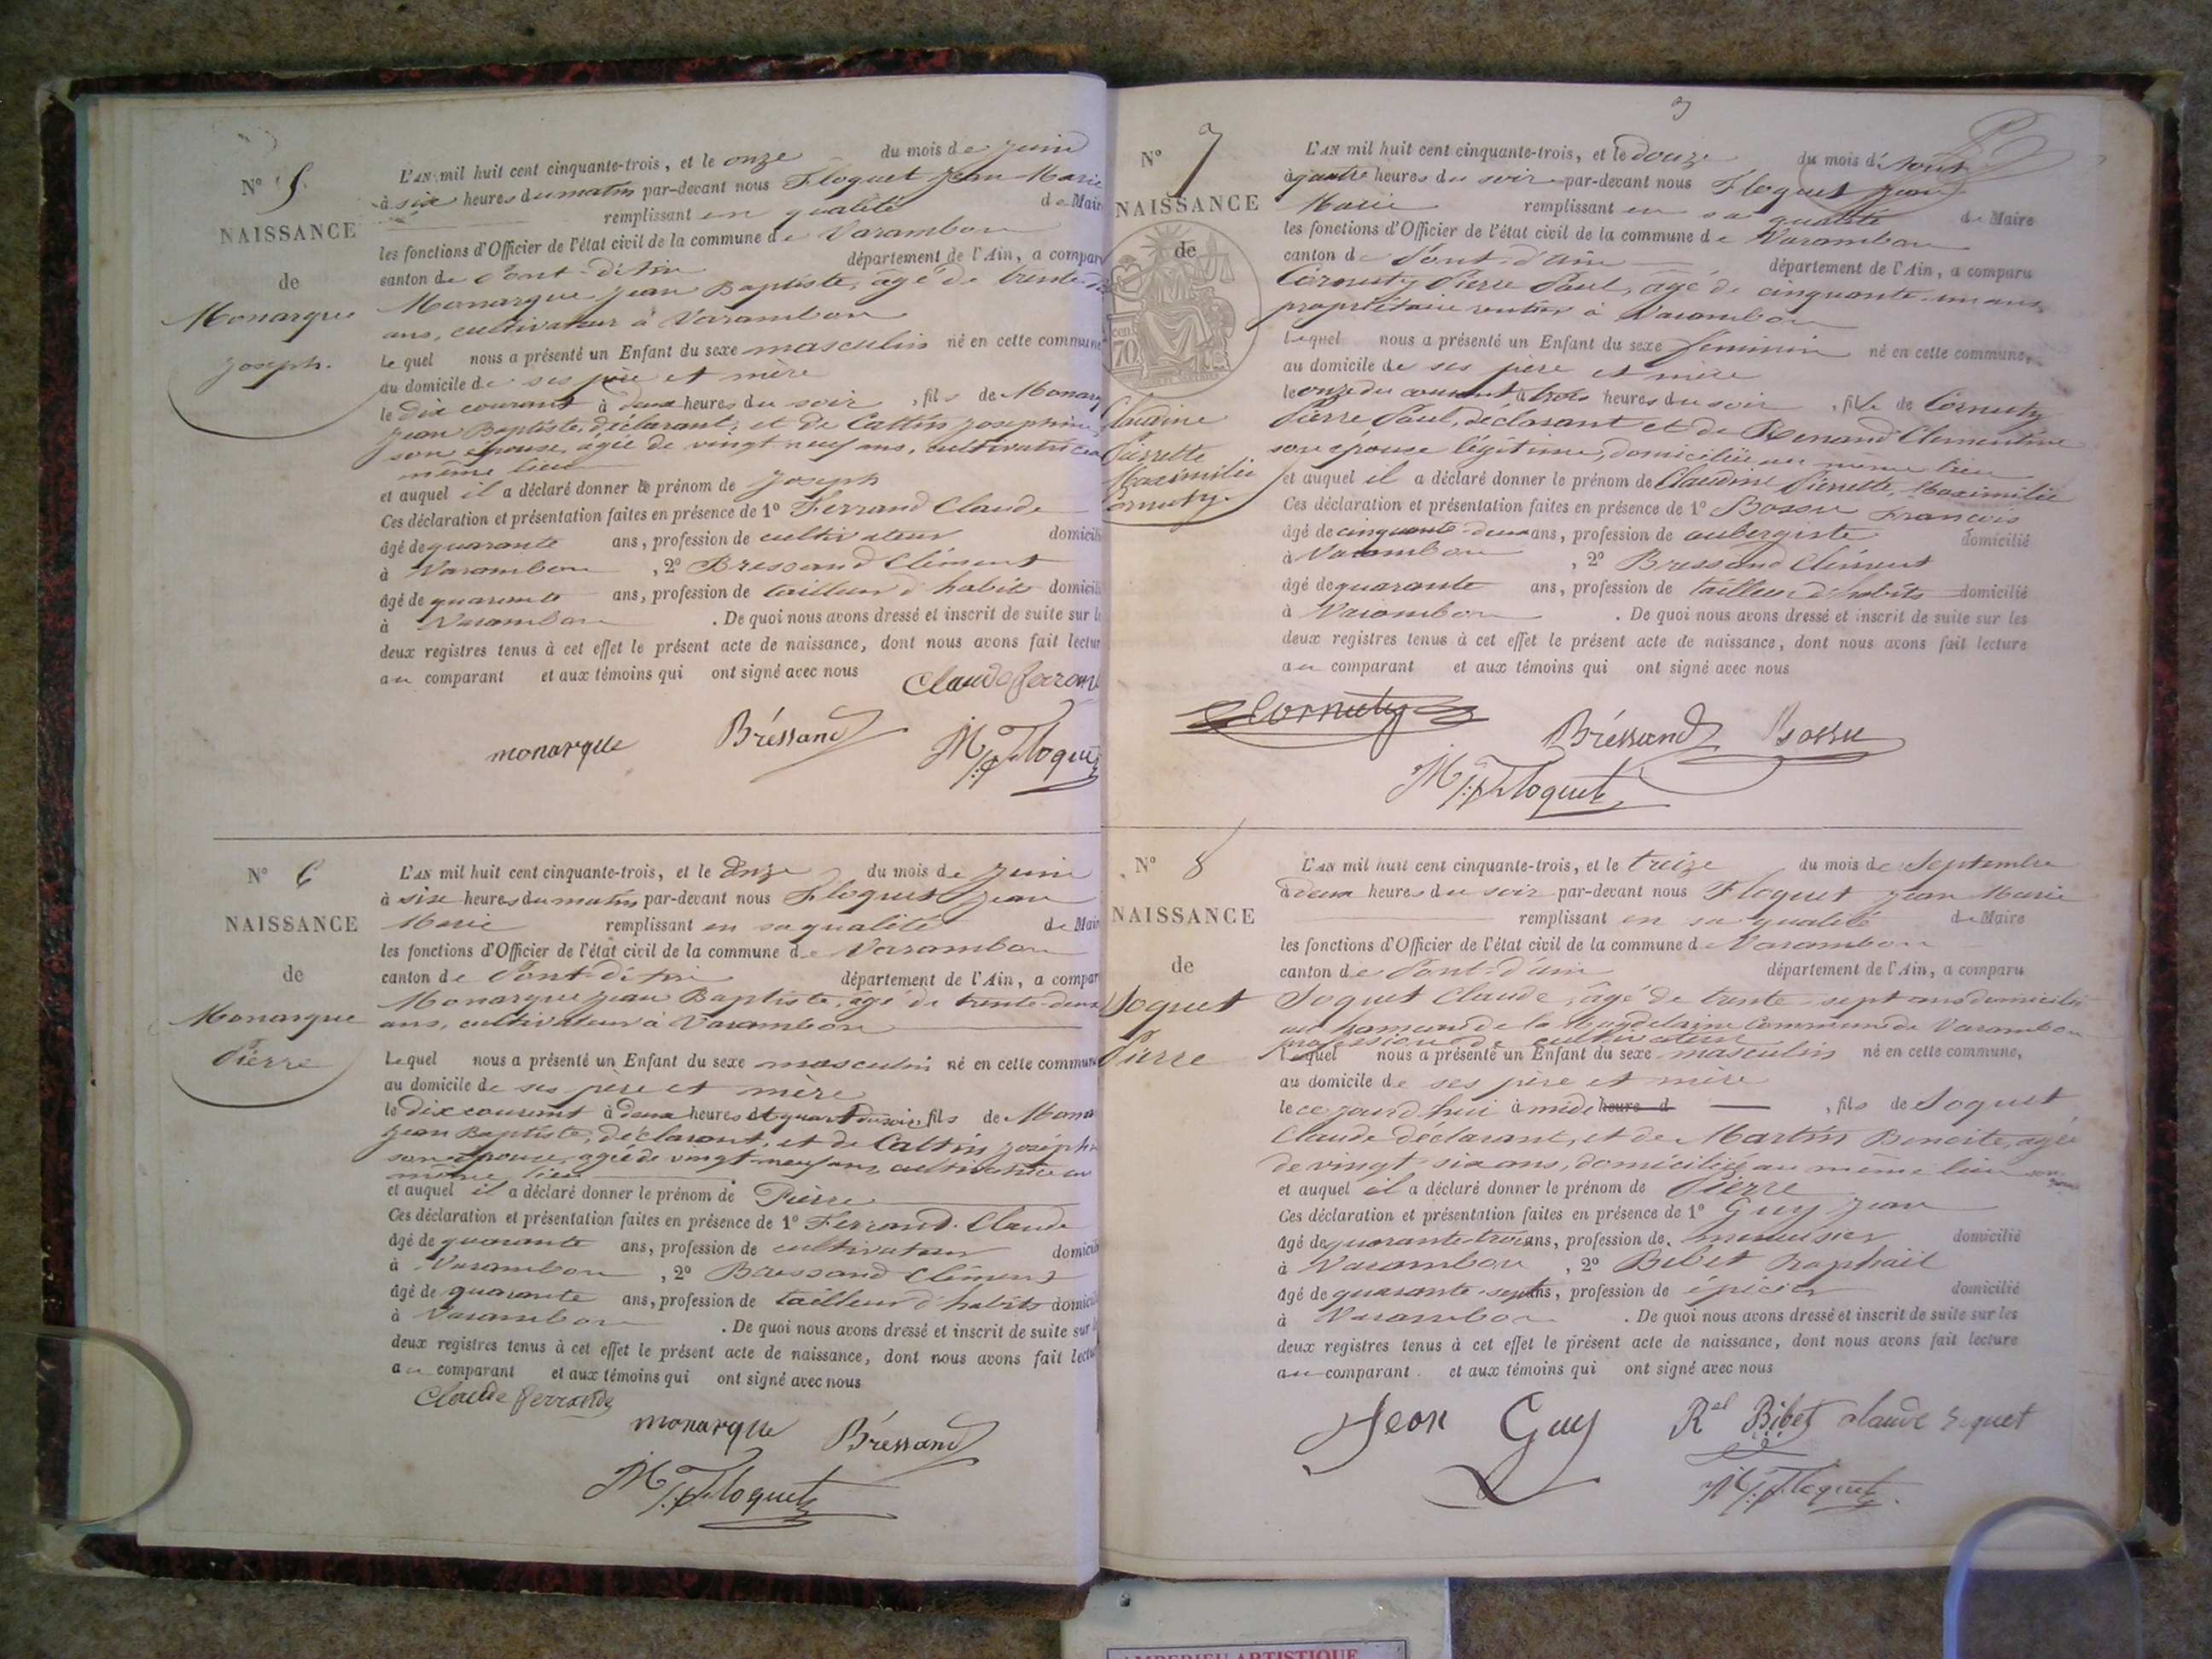 N° 5
NAISSANCE
de
Monarque
Joseph.
L'AN mil huit cent cinquante-trois, et le onze du mois de juin
à six heures du matin par-devant nous Floquet Jean Marie
remplissant en qualité de Mair
les fonctions d'Officier de l'état civil de la commune de Varambon
canton de Pont-d'Ain département de l'Ain, a compar
Monarque Jean Baptiste, âgé de trente
ans, cultivateur à Varambon
Le quel nous a présenté un Enfant du sexe masculin né en cette commune
au domicile de ses père et mère
le dix courant à deux heures du soir, fils de Monarq
Jean Baptiste, déclarant, et de Cattin Josephine
son épouse, âgée de vingt neuf ans, cultivatrice au
même lieu
et auquel il a déclaré donner le prénom de Joseph
Ces déclaration et présentation faites en présence de 1° Ferrand Claude
âgé de quarante ans, profession de cultivateur domicili
à Varambon, 2° Bressand Clément
âgé de quarante ans, profession de tailleur d'habits domicili
à Varambon. De quoi nous avons dressé et inscrit de suite sur l
deux registres tenus à cet effet le présent acte de naissance, dont nous avons fait lectur
au comparant et aux témoins qui ont signé avec nous
Claude ferrand
monarque Bréssand M Floquet
N° 6
NAISSANCE
de
Monarque
Pierre
L'AN mil huit cent cinquante-trois, et le onze du mois de juin
à six heures du matin par-devant nous Floquet Jean
Marie remplissant en sa qualité de Mair
les fonctions d'Officier de l'état civil de la commune de Varambon
canton de Pont-d'Ain département de l'Ain, a compar
Monarque Jean Baptiste, âgé de trente-deux
ans, cultivateur à Varambon
Lequel nous a présenté un Enfant du sexe masculin né en cette commune
au domicile de ses père et mère
le dix courant à deux heures et quart du soir, fils de Mona
Jean Baptiste, déclarant, et de Cattin Joséph
son épouse, agée de vingt-neuf ans, cultivatrice au
même lieu
et auquel il a déclaré donner le prénom de Pierre
Ces déclaration et présentation faites en présence de 1° Ferrand Claude
âgé de quarante ans, profession de cultivateur domicili
à Varambon, 2° Bressand Clément
âgé de quarante ans, profession de tailleur d'habits domicil
à Varambon. De quoi nous avons dressé et inscrit de suite sur l
deux registres tenus à cet effet le présent acte de naissance, dont nous avons fait lectu
au comparant et aux témoins qui ont signé avec nous
Claude ferrand
monarque Bréssand
M Floquet
3
N° 7
NAISSANCE
de
Claudine
Pierrette
Maximilie
Cornuty
L'AN mil huit cent cinquante-trois, et le douze du mois d'Août
à quatre heures du soir par-devant nous Floquet Jean
Marie remplissant en sa qualité de Maire
les fonctions d'Officier de l'état civil de la commune de Varambon
canton de Pont-d'ain département de l'Ain, a comparu
Cornuty Pierre Paul, âgé de cinquante-un ans,
propriétaire rentier à Varambon
Lequel nous a présenté un Enfant du sexe féminin né en cette commune,
au domicile de ses père et mère
le onze du courant à trois heures du soir, fille de Cornuty
Pierre Paul, déclarant et de Renand Clementine
son épouse légitime, domiciliée au même lieu
et auquel il a déclaré donner le prénom de Claudine Pierrette, Maximilie
Ces déclaration et présentation faites en présence de 1° Bossu François
âgé de cinquante-deux ans, profession de aubergiste domicilié
à Varambon, 2° Bressand Clément
âgé de quarante ans, profession de tailleur d'habits domicilié
à Varambon. De quoi nous avons dressé et inscrit de suite sur les
deux registres tenus à cet effet le présent acte de naissance, dont nous avons fait lecture
au comparant et aux témoins qui ont signé avec nous
Cornuty
Bréssand Bossu
M Floquet
N° 8
NAISSANCE
de
Soquet
Pierre
L'AN mil huit cent cinquante-trois, et le treize du mois de Septembre
à deux heures du soir par-devant nous Floquet Jean Marie
remplissant en sa qualité de Maire
les fonctions d'Officier de l'état civil de la commune de Varambon
canton de Pont-d'ain département de l'Ain, a comparu
Soquet Claude, âgé de trente-sept ans domicilié
au hameau de la Magdelaine Commune de Varambon
profession de cultivateur
Lequel nous a présenté un Enfant du sexe masculin né en cette commune,
au domicile de ses père et mère
le ce jourd'hui à midi heure d, fils de Soquet
Claude déclarant, et de Martin Benoite, agée
de vingt-six ans, domiciliée au même lieu
et auquel il a déclaré donner le prénom de Pierre
Ces déclaration et présentation faites en présence de 1° Guy Jean
âgé de quarante-trois ans, profession de menuisier domicilié
à Varambon, 2° Bibet Raphaël
âgé de quarante-sept ans, profession de épicier domicilié
à Varambon. De quoi nous avons dressé et inscrit de suite sur les
deux registres tenus à cet effet le présent acte de naissance, dont nous avons fait lecture
au comparant et aux témoins qui ont signé avec nous
Jean Guy Rel Bibet claude Soquet
M Floquet
AMPERIEU ARTISTIQUE